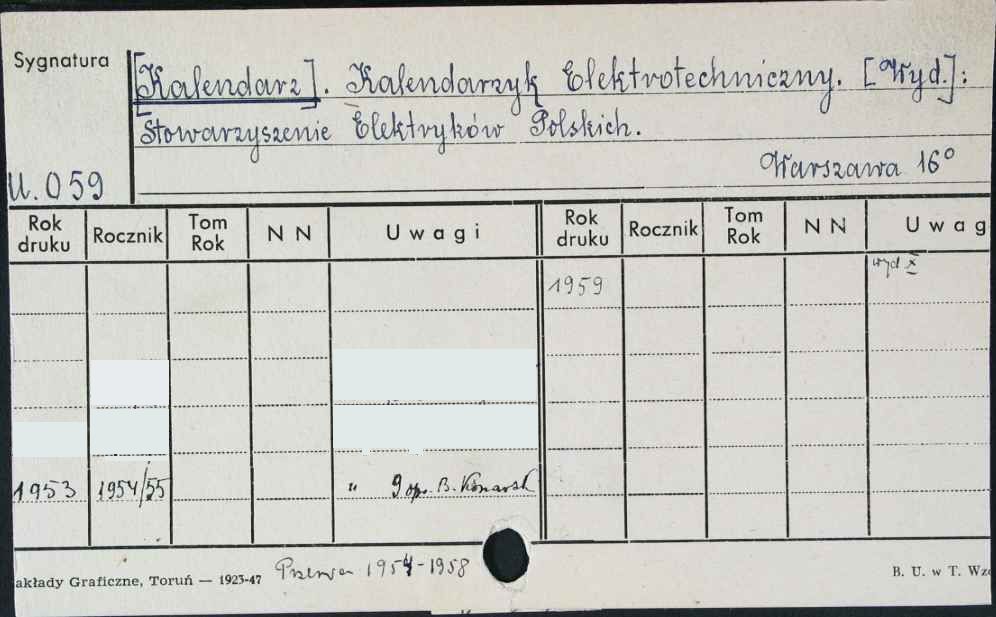 Sygnatura
[Kalendarz]. Kalendarzyk Elektrotechniczny. [Wyd.]:
Stowarzyszenie Elektryków Polskich.
Warszawa 16°
U. 059
Rok druku Rocznik Tom Rok N N Uwagi Rok druku Rocznik Tom Rok N N Uwag
1959 wyd X
1953 1954/55 " 9 op. B. Konarsk
akłady Graficzne, Toruń — 1923-47 Przerwa 1954-1958 B. U. w T. Wzo